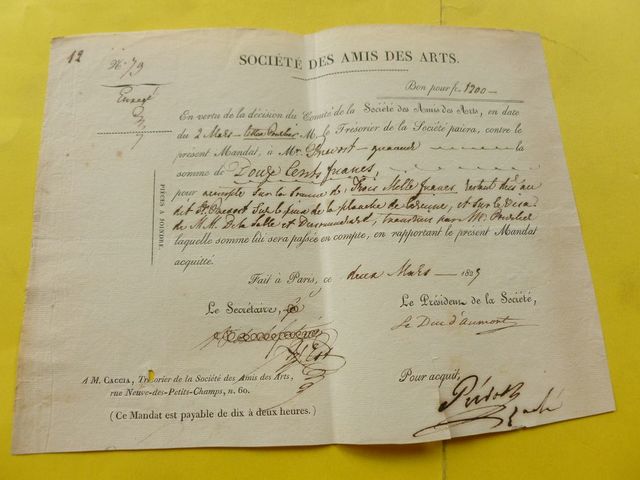 12
N.º 73
SOCIÉTÉ DES AMIS DES ARTS.
Bon pour fr. 1200
En vertu de la décision du Comité de la Société des Amis des Arts, en date
du 2 Mars M. le Trésorier de la Société paiera, contre le
présent Mandat, à Mr. graveur la
somme de Douze Cents francs,
pour sur la somme de Trois Mille francs, restant due au
dit Sr. sur le prix de la planche de et sur le
de M.M. De la Salle et par Mr.
laquelle somme lui sera passée en compte, en rapportant le présent Mandat
acquitté.
PIÈCES A JOINDRE.
Fait à Paris, ce deux Mars 182
Le Secrétaire,
Le Président de la Société,
Le Duc d'aumont
A M. CACCIA, Trésorier de la Société des Amis des Arts,
rue Neuve-des-Petits-Champs, n. 60.
Pour acquit,
(Ce Mandat est payable de dix à deux heures.)